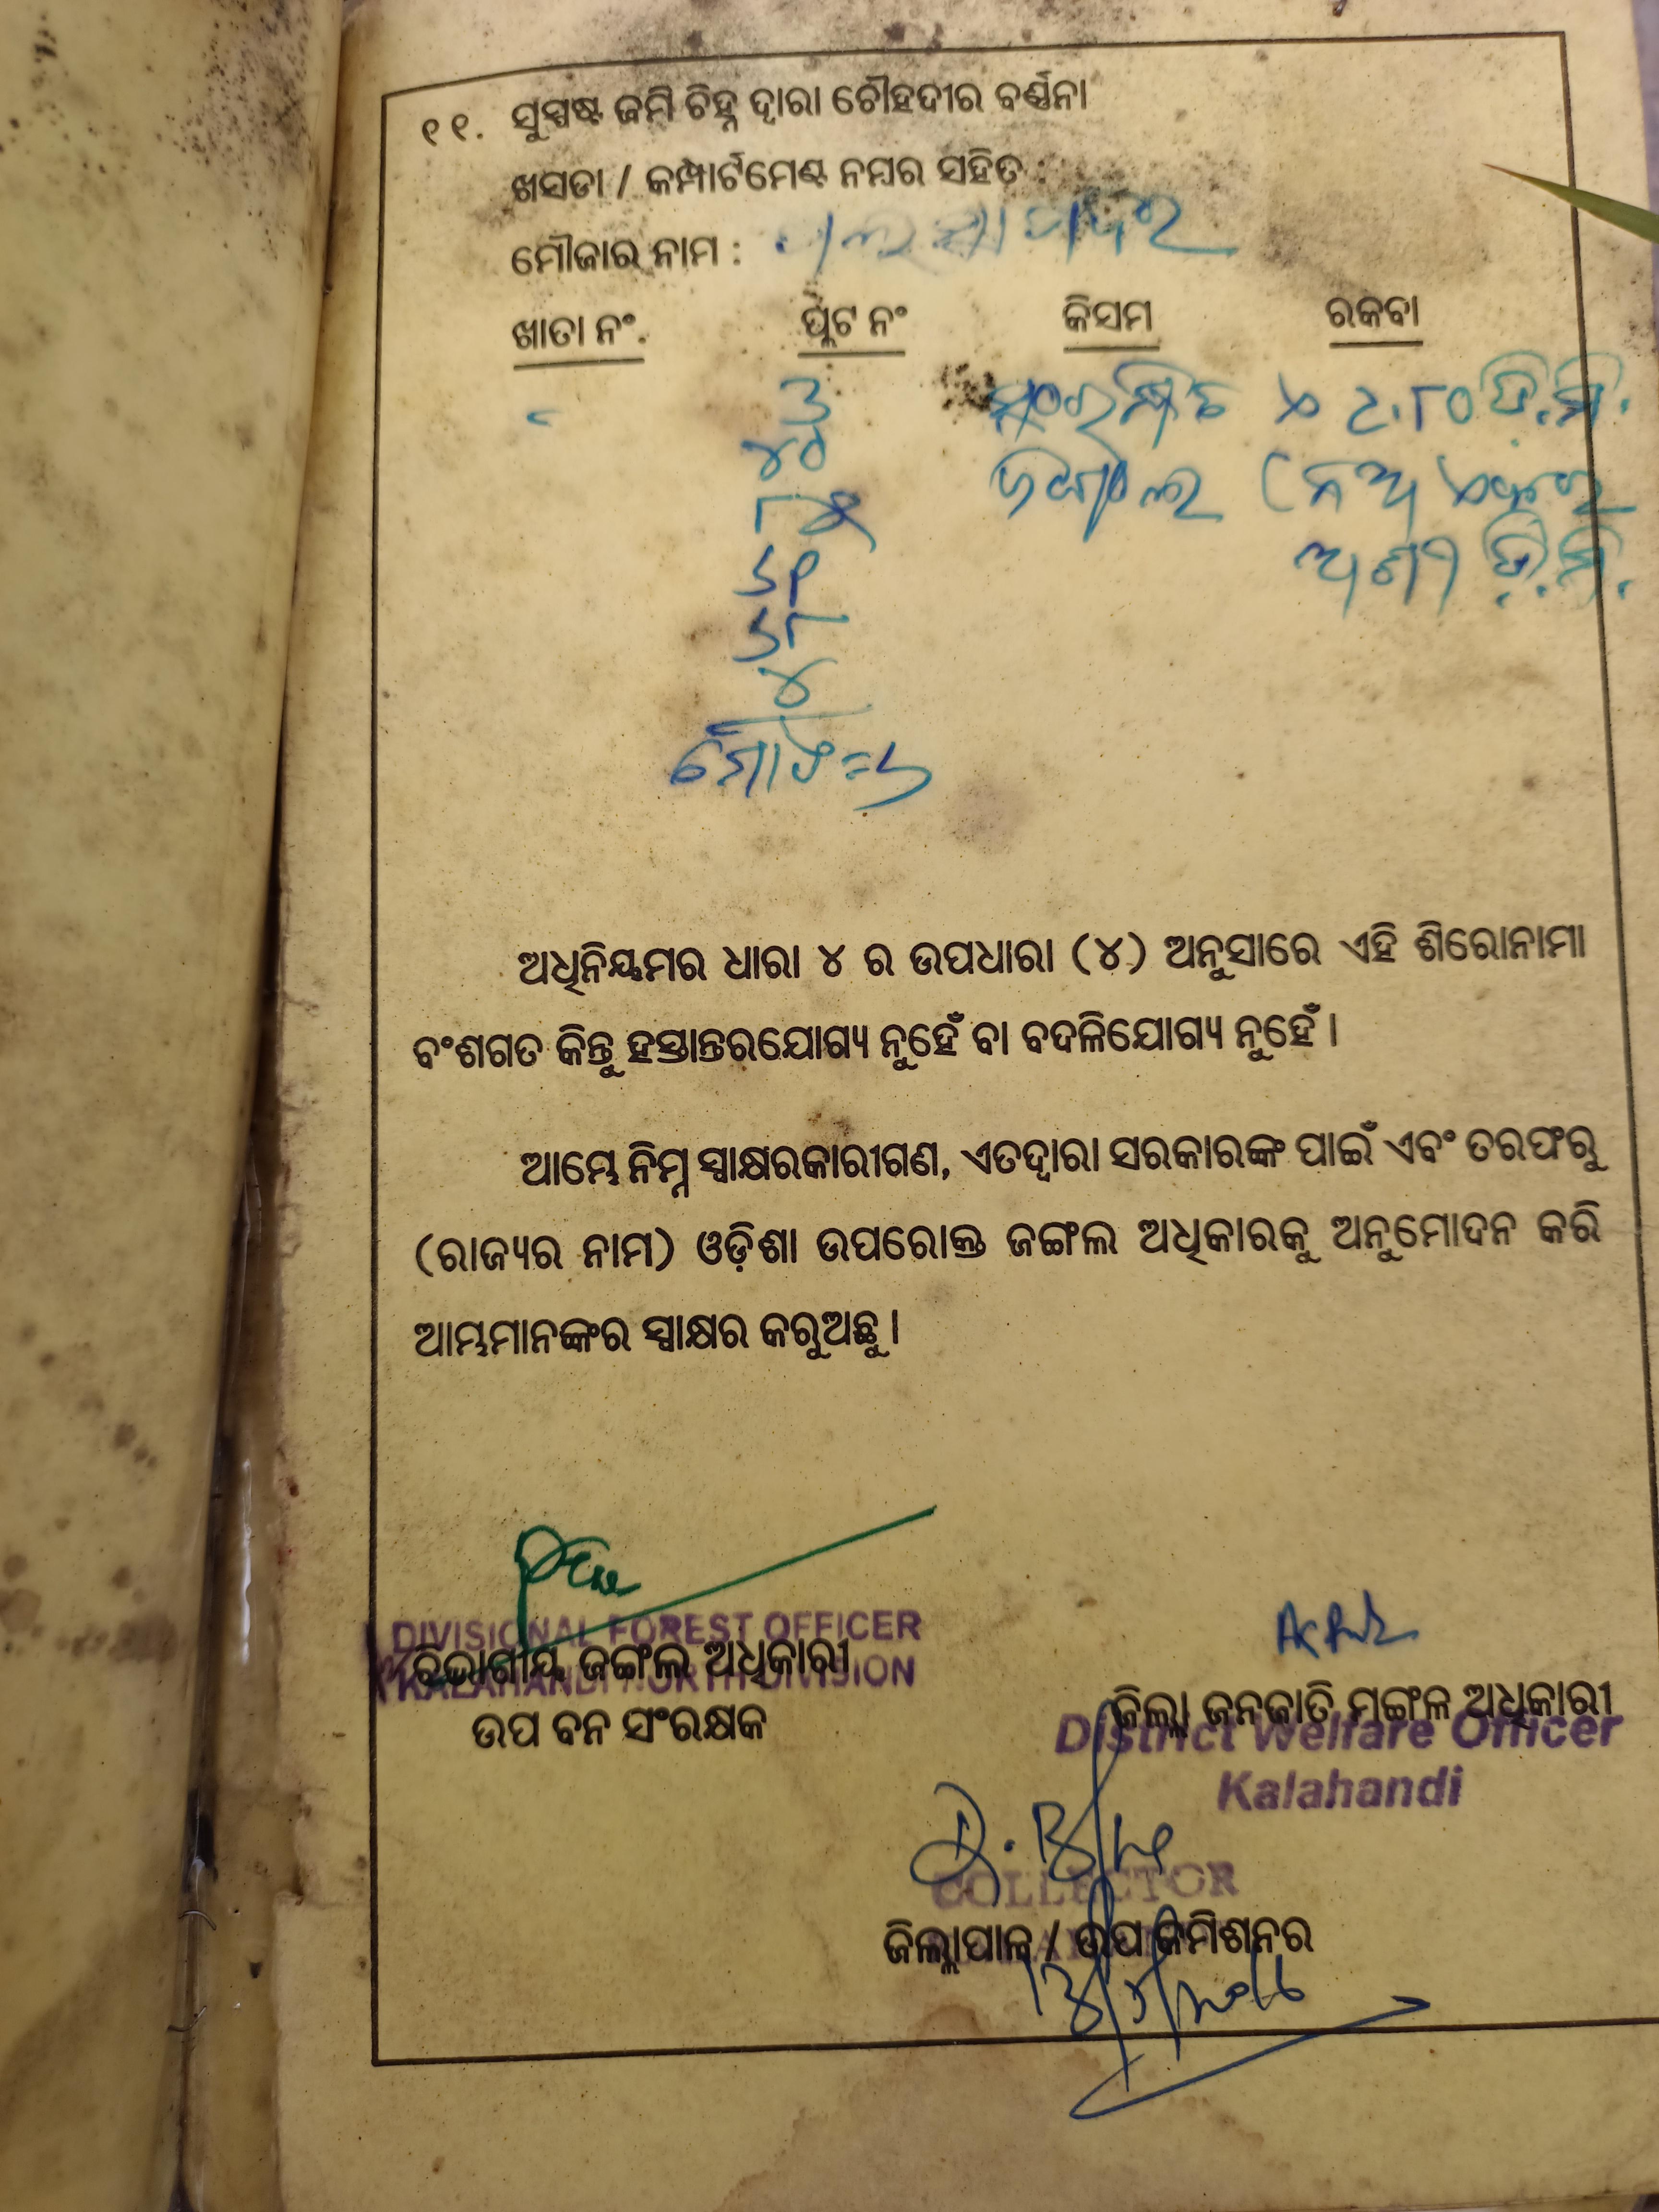 ୧୧. ସୁସ୍ପଷ୍ଟ ଜମି ଚିହ୍ନ ଦ୍ୱାରା ଚୌହଦୀର ବର୍ଣ୍ଣନା
ଖସଡା / କମ୍ପାର୍ଟମେଣ୍ଟ ନମ୍ବର ସହିତ :
ମୌଜାର ନାମ :
ଖାତା ନଂ. ପ୍ଲଟ ନଂ କିସମ ରକବା
୩ ସଂରକ୍ଷିତ ଡି.ମି.
୪୦ ଜଙ୍ଗଲ
୬୧ ଡି.ମି.
୬୮
୪
ମୋଟ=୬
ଅଧିନିୟମର ଧାରା ୪ ର ଉପଧାରା (୪) ଅନୁସାରେ ଏହି ଶିରୋନାମା
ବଂଶଗତ କିନ୍ତୁ ହସ୍ତାନ୍ତରଯୋଗ୍ୟ ନୁହେଁ ବା ବଦଳିଯୋଗ୍ୟ ନୁହେଁ ।
ଆମ୍ଭେ ନିମ୍ନ ସ୍ୱାକ୍ଷରକାରୀଗଣ, ଏତଦ୍ୱାରା ସରକାରଙ୍କ ପାଇଁ ଏବଂ ତରଫରୁ
(ରାଜ୍ୟର ନାମ) ଓଡ଼ିଶା ଉପରୋକ୍ତ ଜଙ୍ଗଲ ଅଧିକାରକୁ ଅନୁମୋଦନ କରି
ଆମ୍ଭମାନଙ୍କର ସ୍ୱାକ୍ଷର କରୁଅଛୁ ।
DIVISIONAL FOREST OFFICER
ବିଭାଗୀୟ ଜଙ୍ଗଲ ଅଧିକାରୀ
KALAHANDI NORTH DIVISION
ଉପ ବନ ସଂରକ୍ଷକ
ଜିଲ୍ଲା ଜନଜାତି ମଙ୍ଗଳ ଅଧିକାରୀ
District Welfare Officer
Kalahandi
COLLECTOR
ଜିଲ୍ଲାପାଳ / ଉପ କମିଶନର